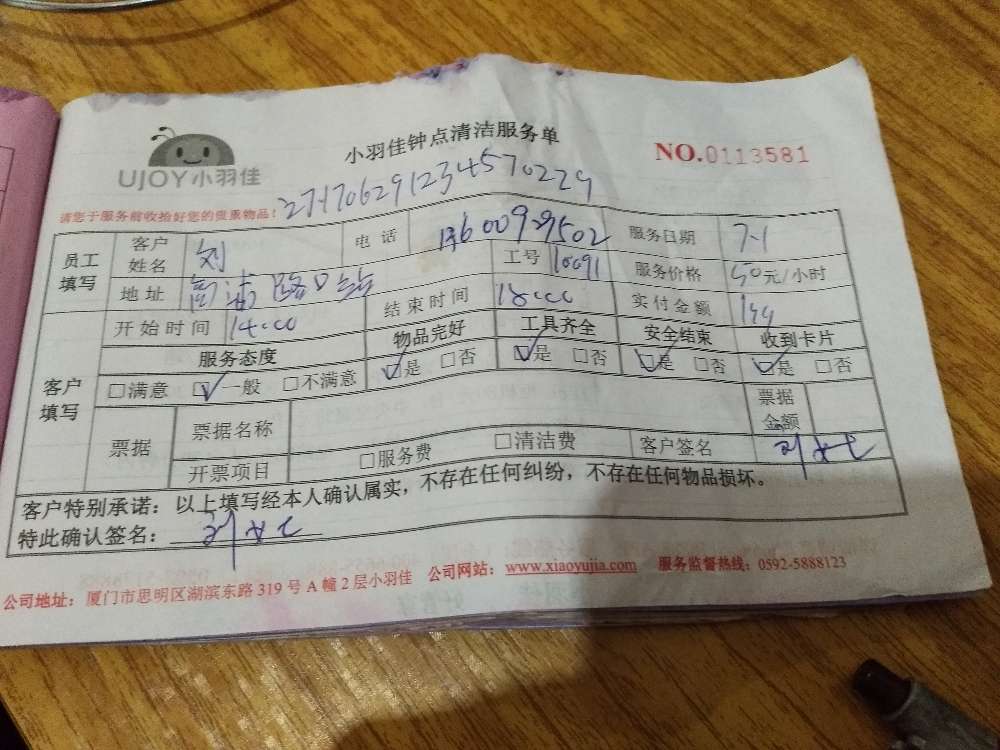 小羽佳钟点清洁服务单
NO.0113581
UJOY小羽佳
请您于服务前收拾好您的贵重物品!
271706291234570229
员工填写 客户姓名 刘 电话 服务日期 7-1
地址 南浦路口站 工号 10091 服务价格 50元/小时
开始时间 14:00 结束时间 18:00 实付金额 144
服务态度 物品完好 工具齐全 安全结束 收到卡片
客户填写 □满意 ☑一般 □不满意 ☑是 □否 ☑是 □否 ☑是 □否 ☑是 □否
票据 票据名称 票据金额
开票项目 □服务费 □清洁费 客户签名 刘女士
客户特别承诺:以上填写经本人确认属实,不存在任何纠纷,不存在任何物品损坏。
特此确认签名: 刘女士
公司地址:厦门市思明区湖滨东路319号A幢2层小羽佳 公司网站:www.xiaoyujia.com 服务监督热线:0592-5888123